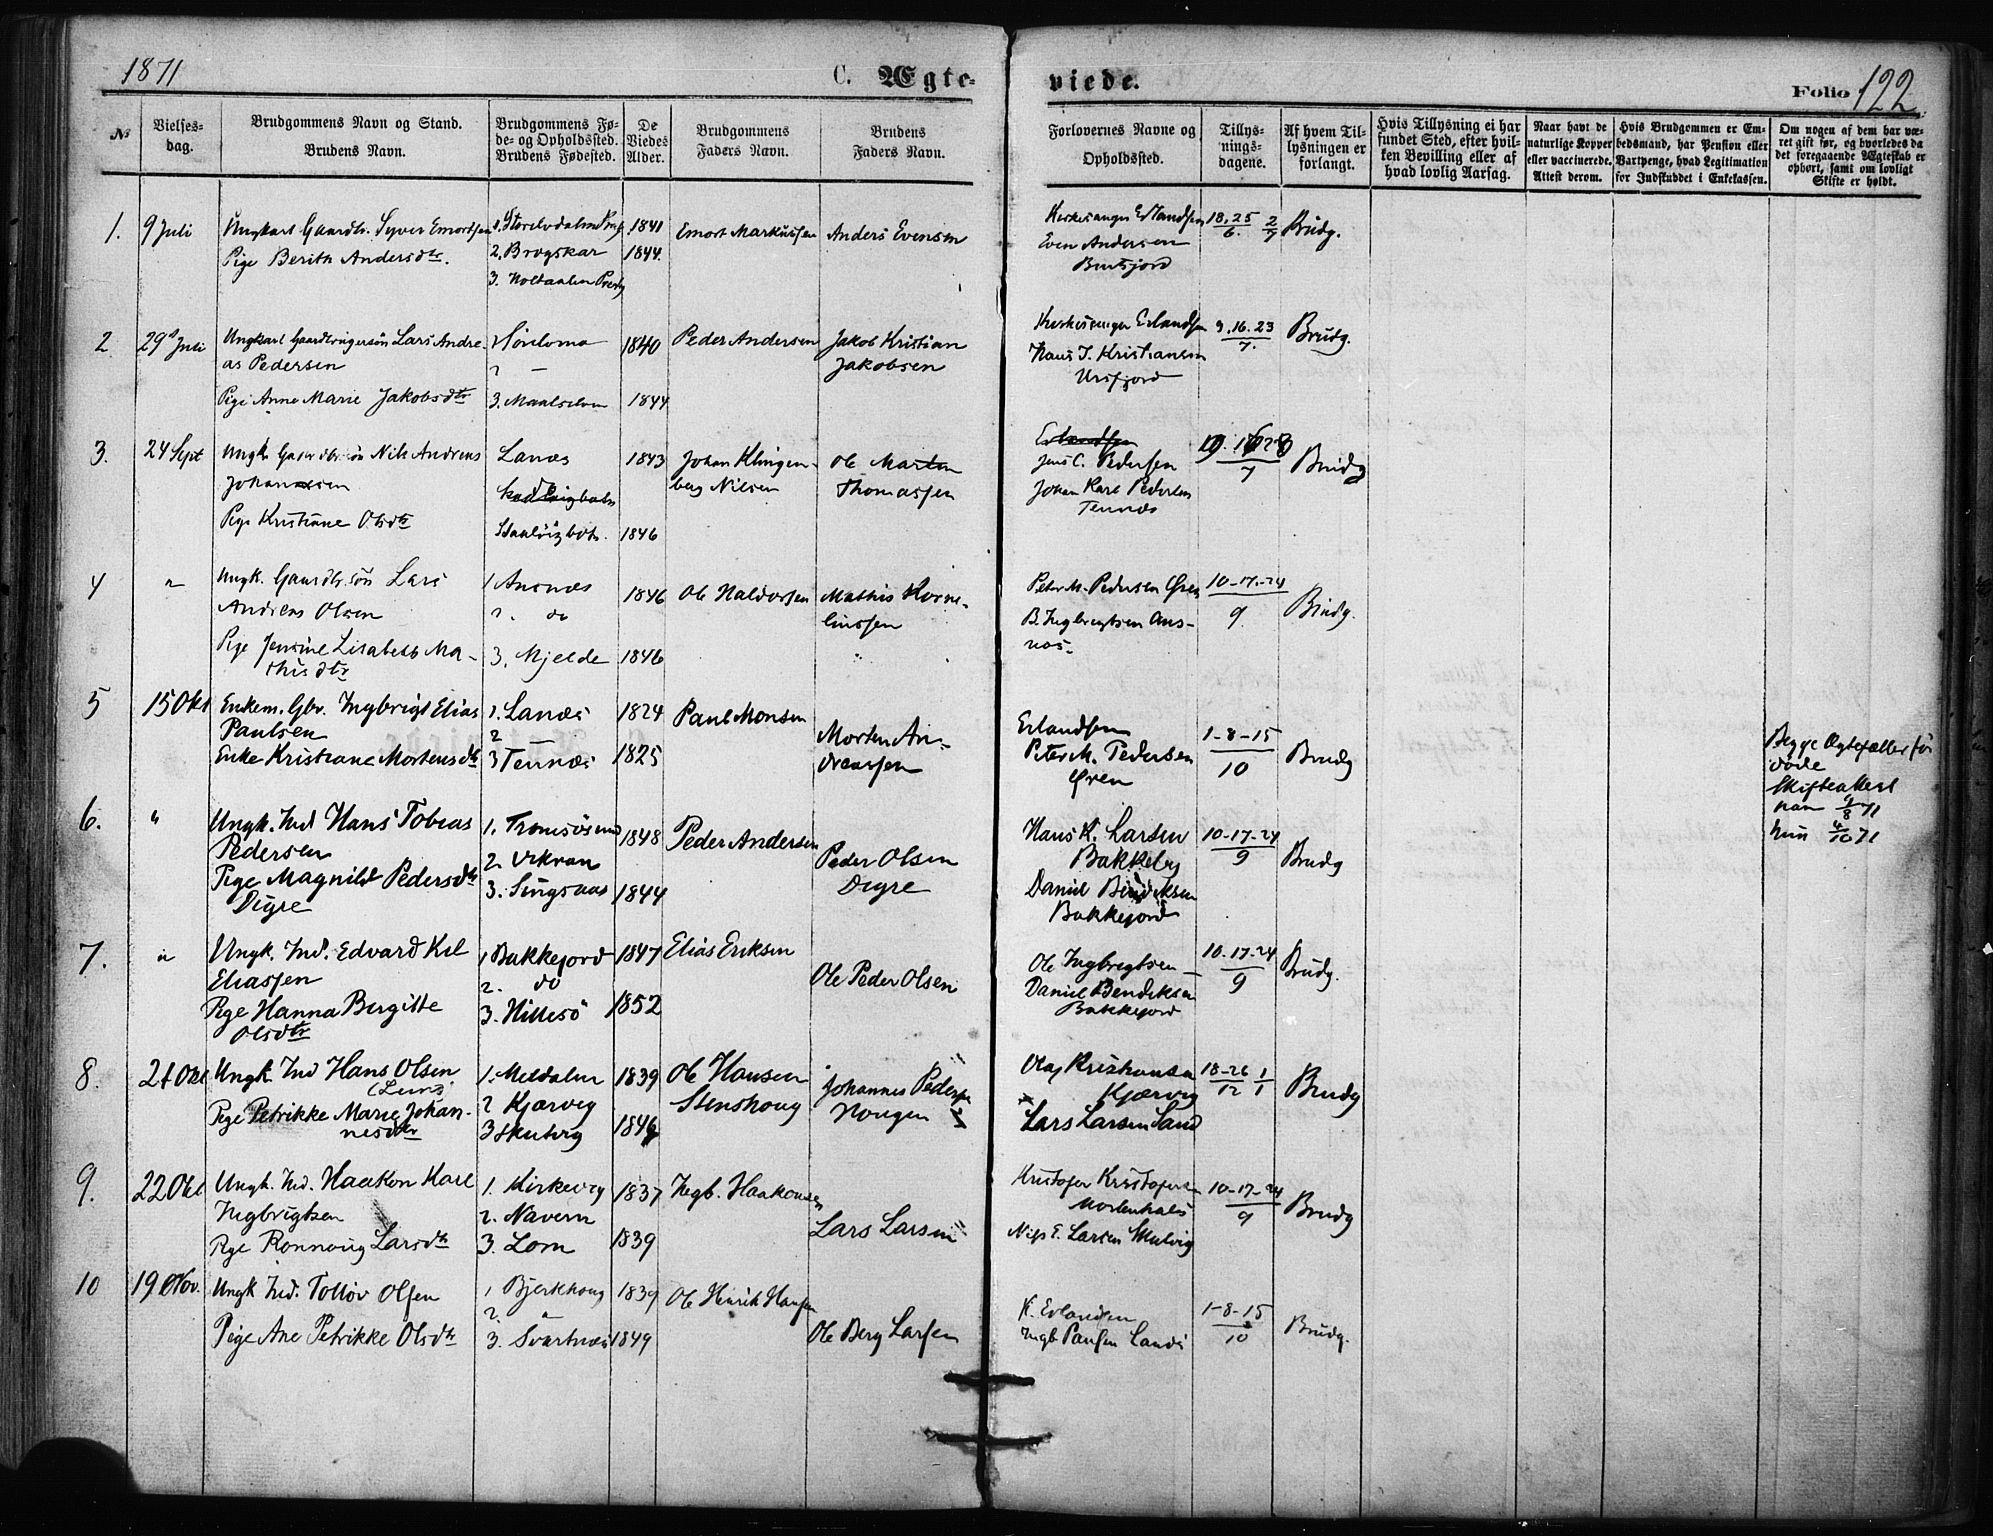 1871
C. Ægte-
viede.
Folio 122
№
Vielses-
dag.
Brudgommens Navn og Stand.
Brudens Navn.
Brudgommens Fø-
de- og Opholdssted.
Brudens Fødested.
De
Viedes
Alder.
Brudgommens
Faders Navn.
Brudens
Faders Navn.
Forlovernes Navne og
Opholdssted.
Tillys-
nings-
dagene.
Af hvem Til-
lysningen er
forlangt.
Hvis Tillysning ei har
fundet Sted, efter hvil-
ken Bevilling eller af
hvad lovlig Aarsag.
Naar havt de
naturlige Kopper
eller vaccinerede.
Attest derom.
Hvis Brudgommen er Em-
bedsmand, har Pension eller
Vartpenge, hvad Legitimation
for Indskuddet i Enkekassen.
Om nogen af dem har væ-
ret gift før, og hvorledes da
det foregaaende Ægteskab er
ophørt, samt om lovligt
Skifte er holdt.
1. 9 Juli Ungkarl Gaardbr. Syver Emortsen 1. 1841 Emort Markussen Anders Evensen Kirkesanger Erlandsen 18. 25/6. 2/7 Brudg.
Pige Berith Andersdtr. 2. 1844 Even Andersen
3. Holtaalen Bentsjord
2 29 Juli Ungkarl Lars Andre- 1840 Peder Andersen Jakob Kristian Kirkesanger Erlandsen 9. 16. 23/7. Brudg.
as Pedersen 2 — Jakobsen Hans J. Kristiansen
Pige Anne Marie Jakobsdtr 3. Maalselven 1844 Ursfjord
3. 24 Sept Ungk. Nils Andreas Lanæs 1843 Johan Klingen- Ole Martin Erlandsen /7 Brudg
Johansen do berg Nilsen Thomassen Jens C. Pedersen
Pige Kristiane Olsdtr 1846 Johan Karl Pedersen
Tennæs
4 " Ungk. Gaardbr.søn Lars 1. Ansnæs 1846 Ole Haldorsen Mathis Korne- Peter M. Pedersen Øren 10-17-24/9 Brudg.
Andreas Olsen 2. do liussen B. Ingbregtsen Ans-
Pige Jensine Lisabeth Ma- 3. Mjelde 1846 næs.
thisdtr
5 15 Okt Enkem. Gbr. Ingbrigt Elias 1. Lanæs 1824 Paul Monsen Morten An- Erlandsen 1-8-15/10 Brudg Begge Ægtefæller
Paulsen 2 — dreassen Peter M. Pedersen døde
Enke Kristiane Mortensdtr 3 Tennæs 1825 Øren Skifteattest
han 9/8 71
hun 4/10 71
6. " Ungk. Ind Hans Tobias 1. Tromsøsund 1848 Peder Andersen Peder Olsen Hans K. Larsen 10-17-24/9 Brudg
Pedersen 2. Vikran Digre Bakkeby
Pige Magnild Pedersdtr 3. Singsaas 1844 Daniel Bendiksen
Digre Bakkejord
7. " Ungk. Ind. Edvard Kil 1. Bakkejord 1847 Elias Eriksen Ole Peder Olsen Ole Ingbregtsen 10-17-24/9 Brudg.
Eliassen 2. do Daniel Bendiksen
Pige Hanna Birgitte 3. Hillesö 1852 Bakkejord
Olsdtr
8. Okt Ungk. Ind Hans Olsen 1. Meldalen 1839 Ole Hansen Johannes Pedersen Olaj Kristiansen 18-26/12 1/1 Brudg
2 Kjærvig Kjærvig
Pige Petrikke Marie Johan- 3 Skulvig Lars Larsen Sand
nesdtr
9. 22 Okt Ungk. Ind. Haakon Karl 1. Kirkevig 1837 Ingb. Haakonsen Lars Larsen Kristofer Kristofersen 10-17-24/9 Brudg
Ingbrigtsen 2. Navern Mortenhals
Pige Ronnaug Larsdtr 3. Lom 1839 Nils E. Larsen Skulvig
10 19 Nov. Ungk Ind. Tollöv Olsen 1 Bjerkhoug 1839 Ole Henrik Hansen Ole Berg Larsen K. Erlandsen 1-8-15/10 Brudg.
2. "
Pige Ane Petrikke Olsdtr 3. Svartnæs 1849 Ingb Paulsen Lanæs